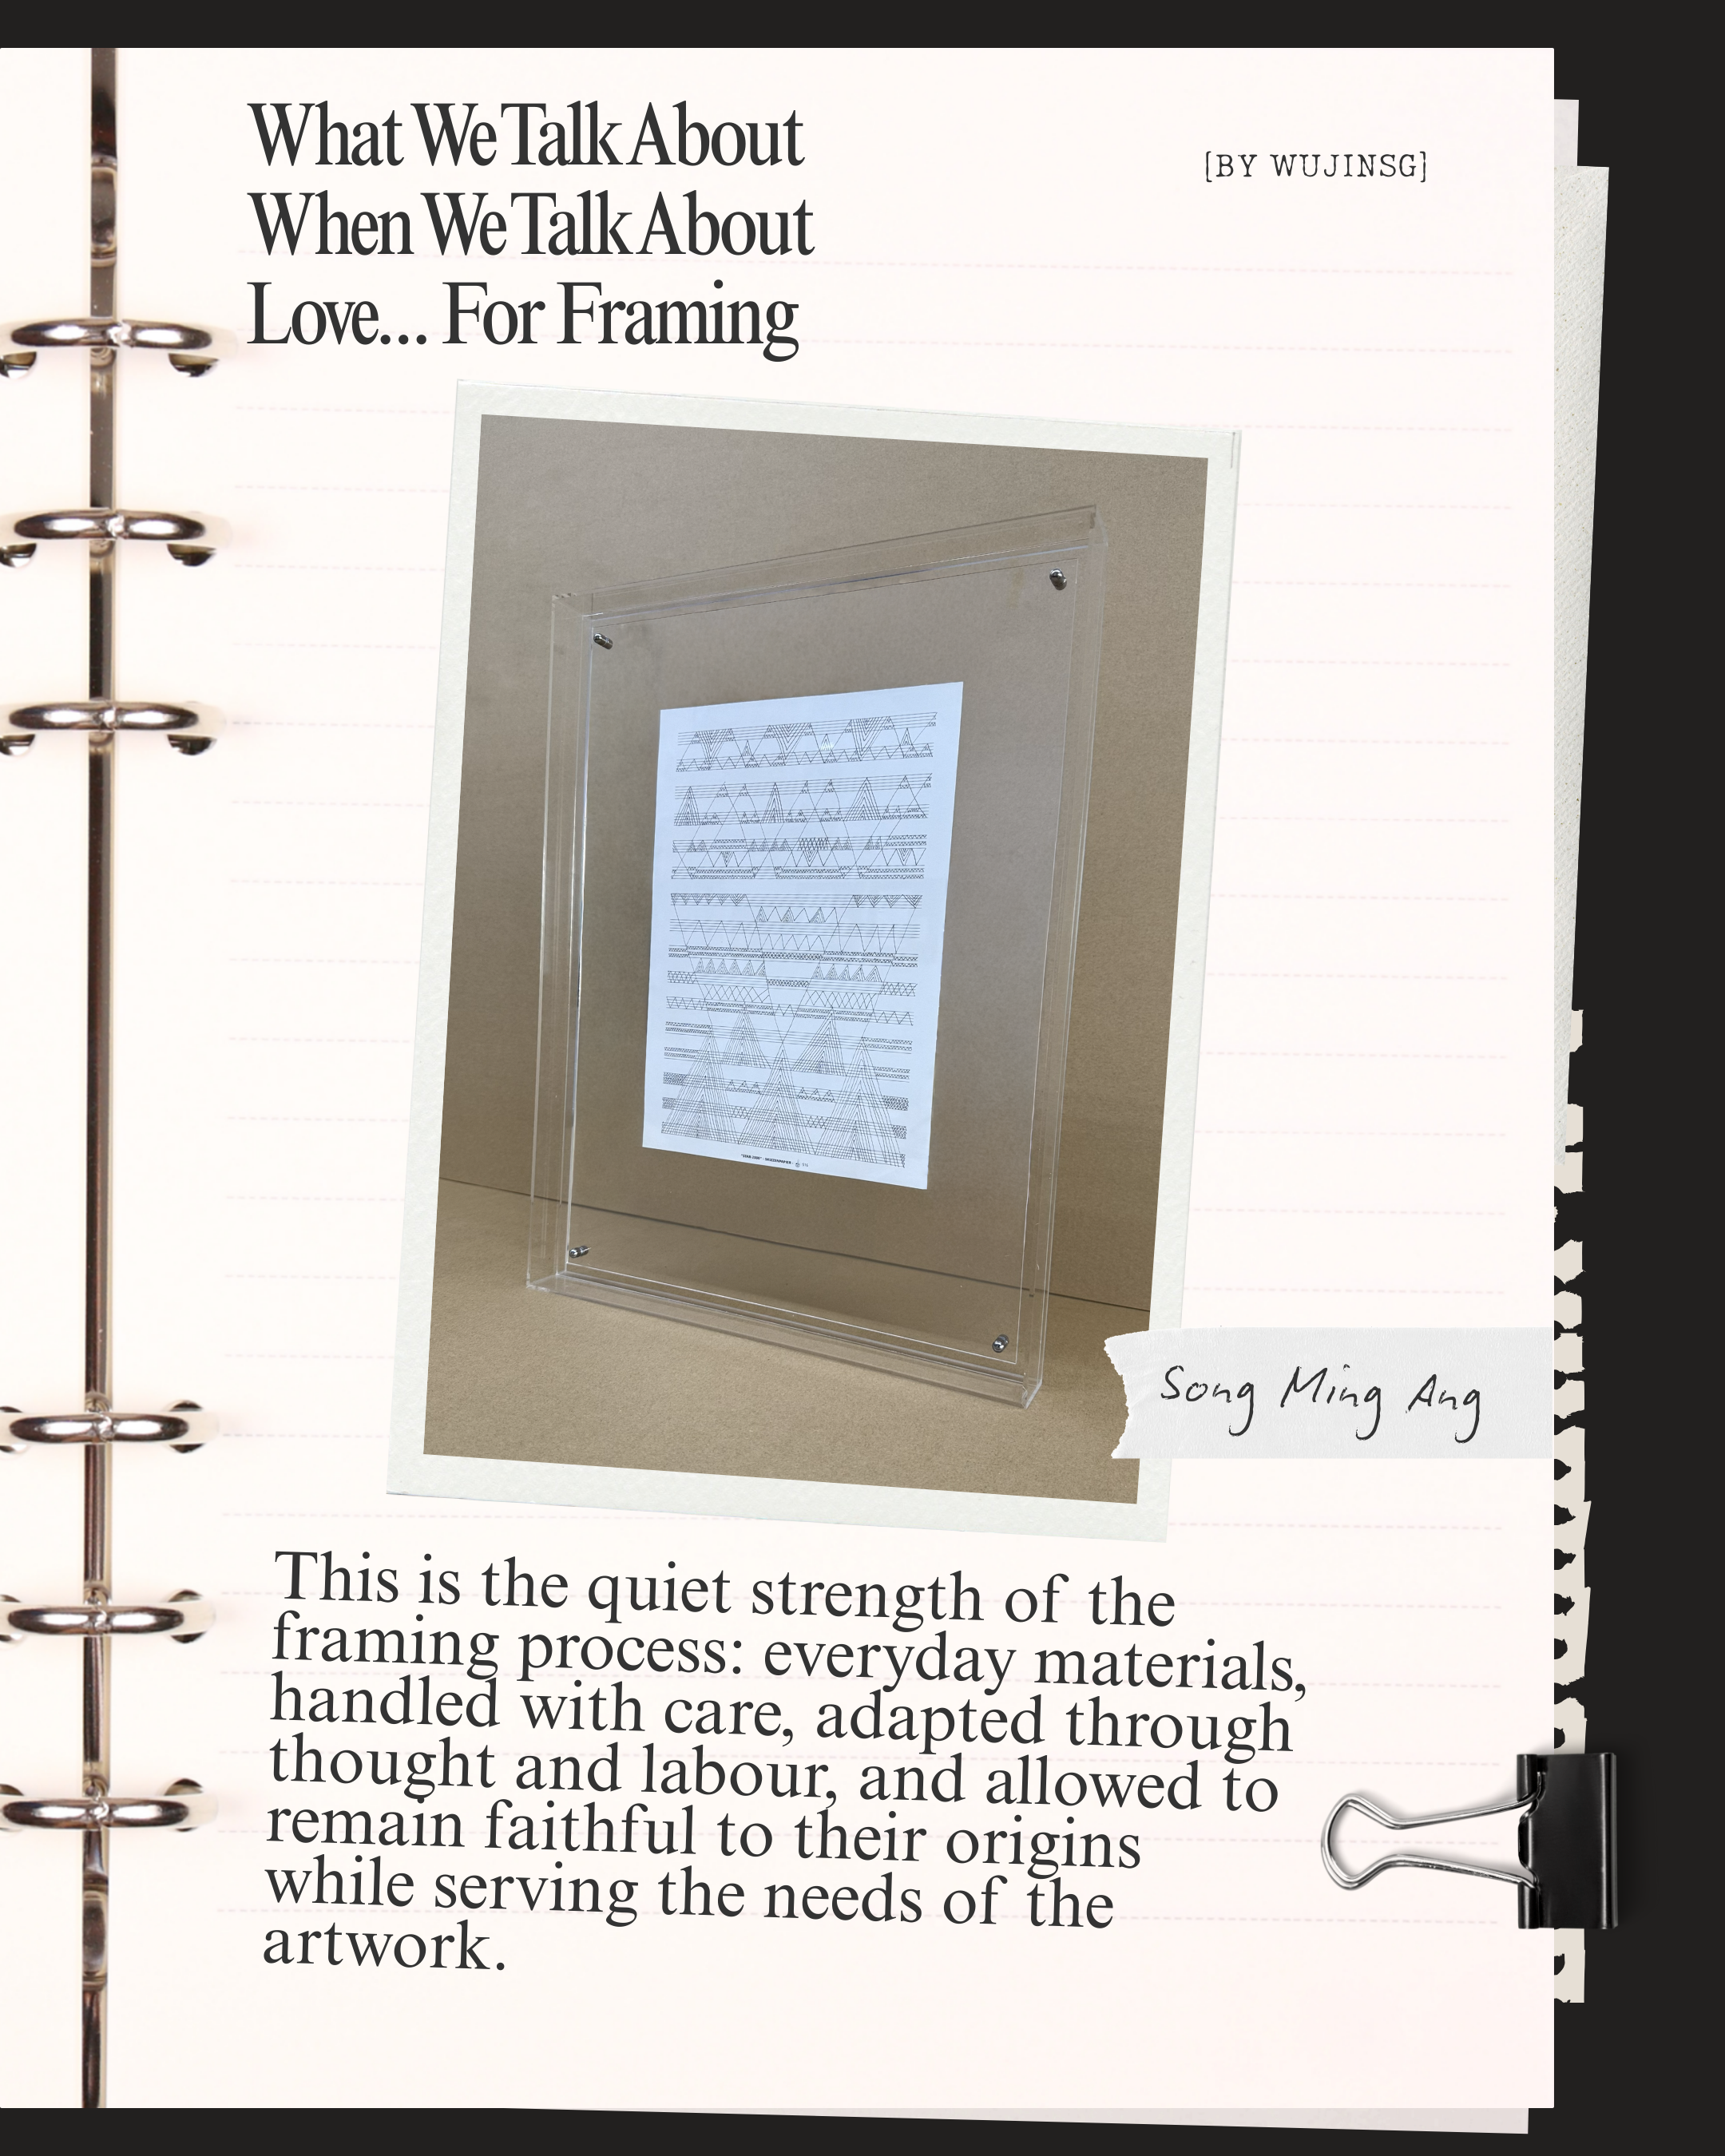 What We Talk About
When We Talk About
Love... For Framing
[BY WUJINSG]
Song Ming Ang
This is the quiet strength of the
framing process: everyday materials,
handled with care, adapted through
thought and labour, and allowed to
remain faithful to their origins
while serving the needs of the
artwork.